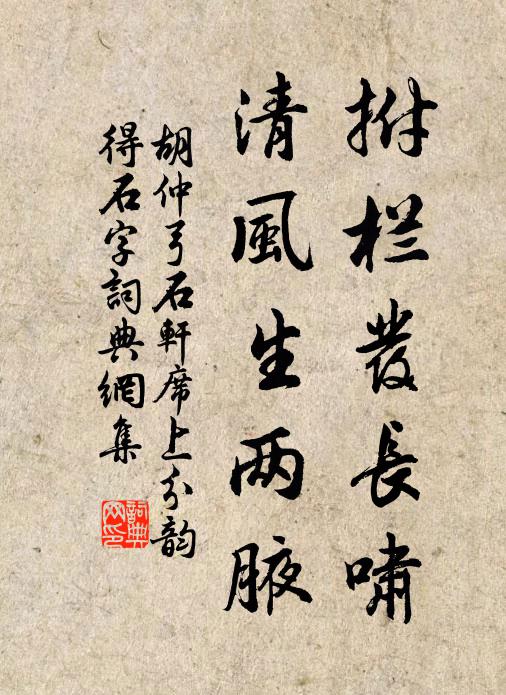 拊栏發長嘯
清風生两腋
胡仲弓石軒席上分韵
得石字詞典網集
詞典
网印